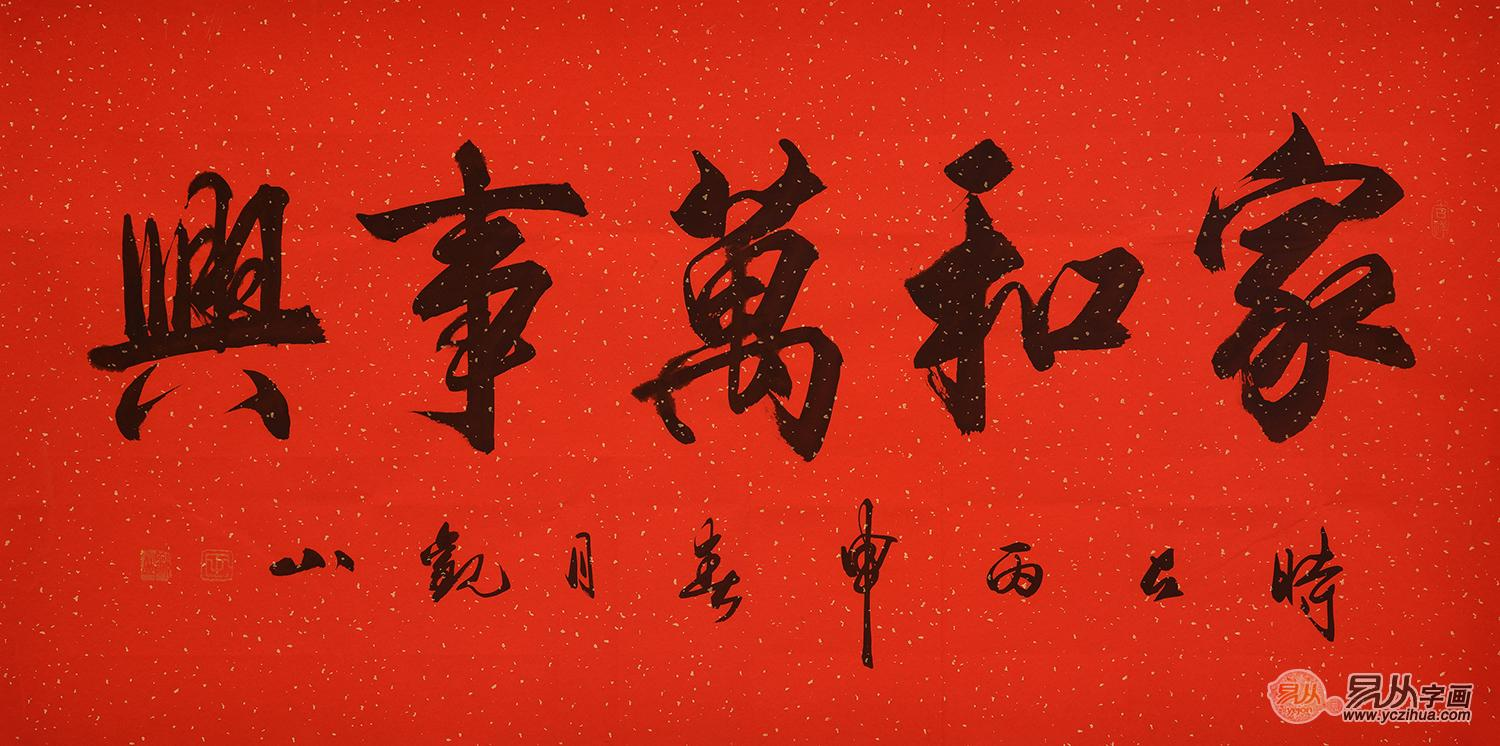 家和萬事興
時在丙申春月觀山
易从字画
yejon
www.yczihua.com